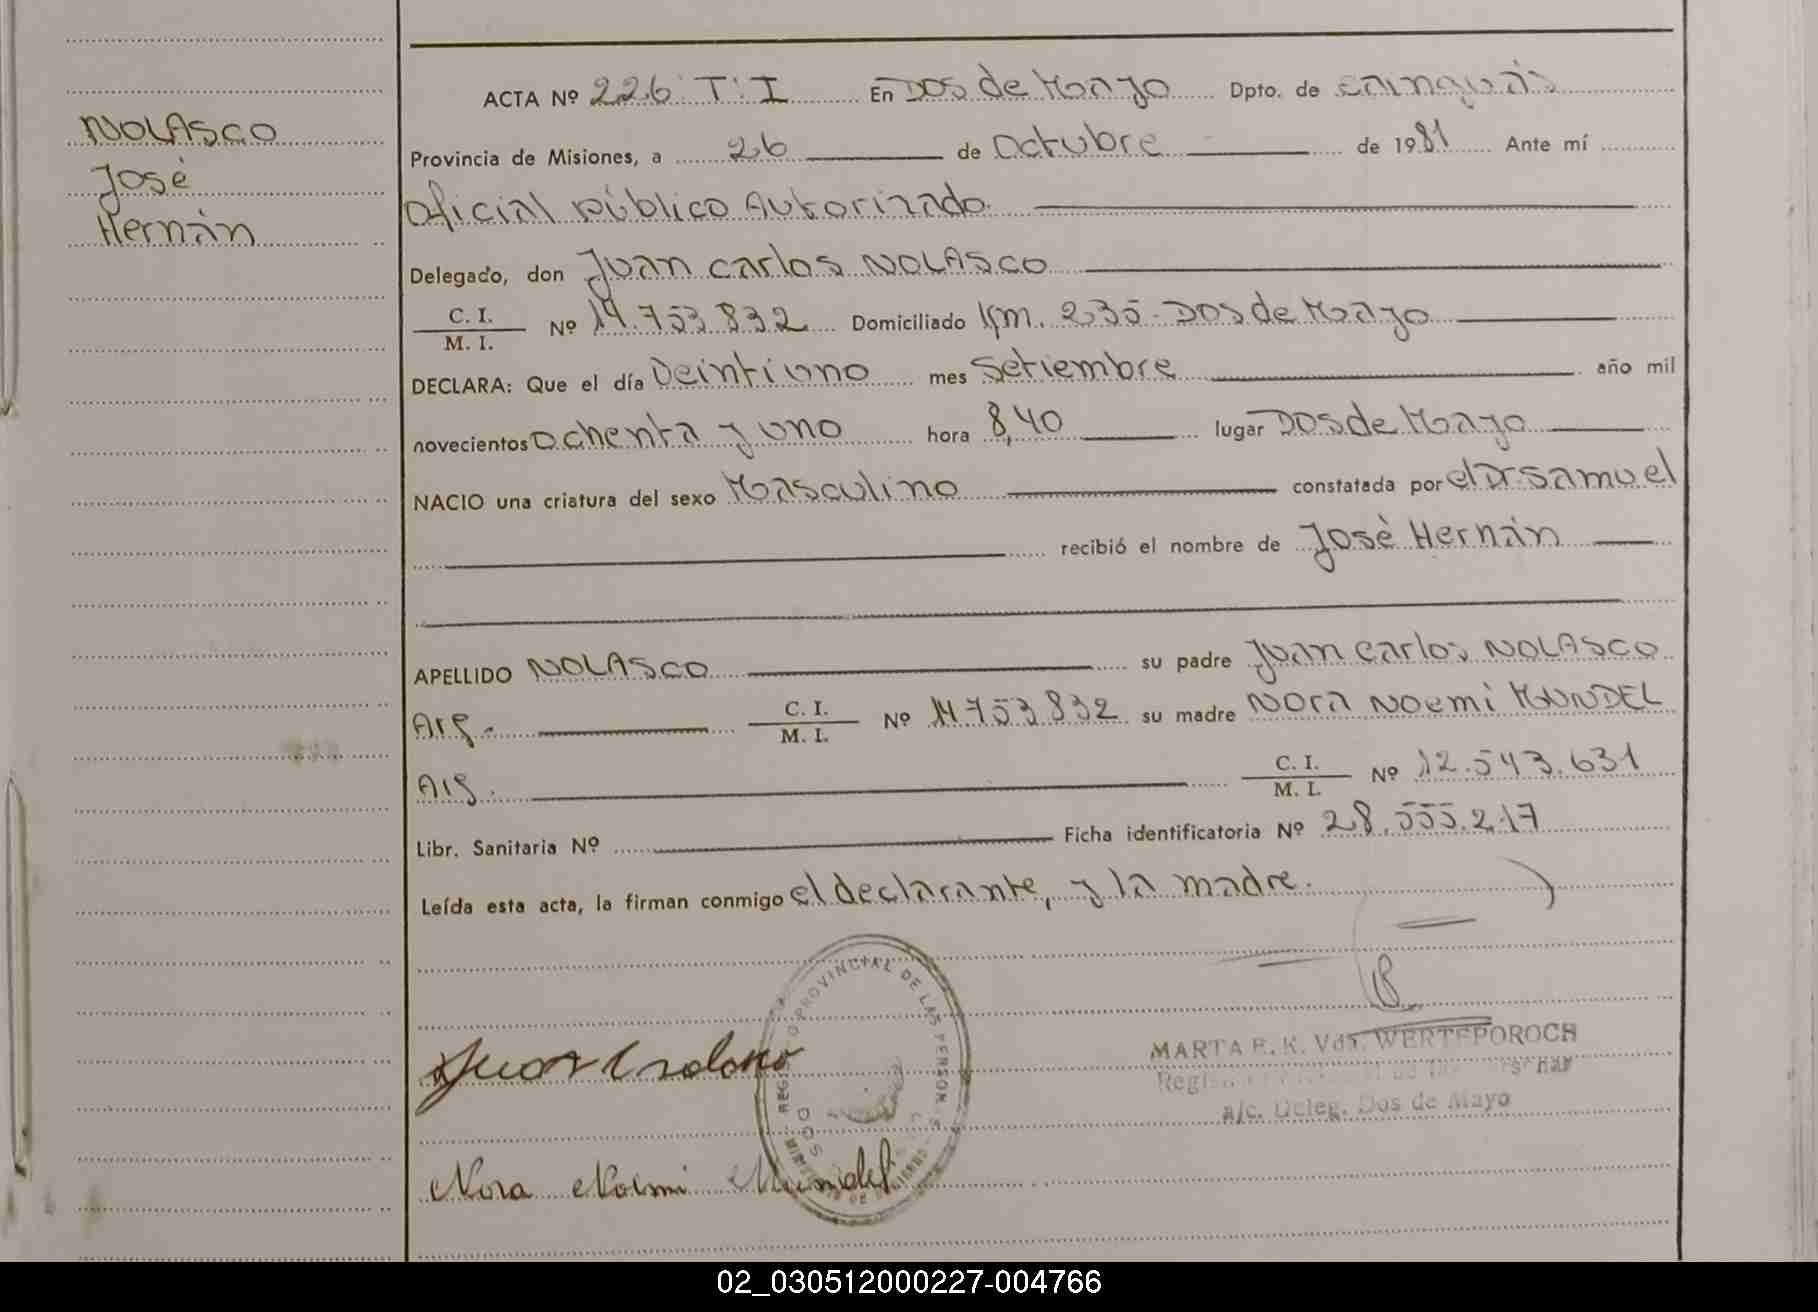 NOLASCO
José
Hernán
ACTA Nº 226 T: I En Dos de Mayo Dpto. de Cainguás
Provincia de Misiones, a 26 de Octubre de 1981 Ante mí
Oficial público Autorizado.
Delegado, don Juan Carlos NOLASCO
C. I.
M. I. Nº 14.753.832 Domiciliado Km. 235 - Dos de Mayo
DECLARA: Que el día Veintiuno mes Setiembre año mil
novecientos ochenta y uno hora 8,40 lugar Dos de Mayo
NACIO una criatura del sexo Masculino constatada por el Dr Samuel
recibió el nombre de José Hernán
APELLIDO NOLASCO su padre Juan Carlos NOLASCO
Arg. C. I. M. I. Nº 14753832 su madre Nora Noemi MUNDEL
Arg. C. I. M. I. Nº 12.543.631
Libr. Sanitaria Nº Ficha identificatoria Nº 28.555.217
Leída esta acta, la firman conmigo el declarante, y la madre.
REGISTRO PROVINCIAL DE LAS PERSONAS
MARTA E. K. Vda. WERTEPOROCH
a/c. Deleg. Dos de Mayo
Nora Noemi Mundel
02_030512000227-004766